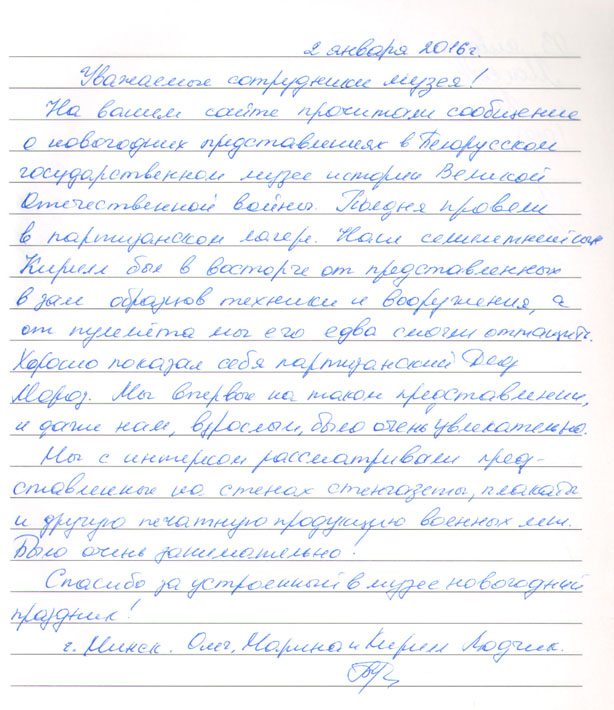 2 января 2016г.
Уважаемые сотрудники музея!
На вашем сайте прочитали сообщение
о новогодних представлениях в Белорусском
государственном музее истории Великой
Отечественной войны. Полдня провели
в партизанском лагере. Наш семилетний сын
Кирилл был в восторге от представленных
в зам образцов техники и вооружения, а
от пулемёта мы его едва смогли оттащить.
Хорошо показал себя партизанский Дед
Мороз. Мы впервые на таком представлении,
и даже нам, взрослым, было очень увлекательно.
Мы с интересом рассматривали пред-
ставленные на стенах стенгазеты, плакаты
и другую печатную продукцию военных лет.
Было очень занимательно.
Спасибо за устроенный в музее новогодний
праздник!
г. Минск. Олег, Марина и Кирилл Людчик.